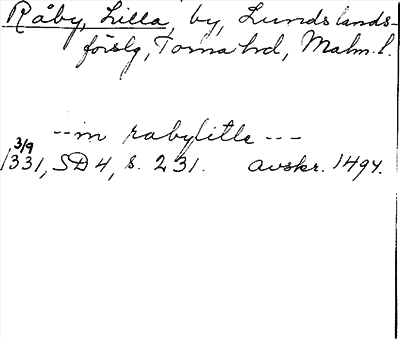 Råby, Lilla, by, Lundslands-
förslg, Torna hd, Malm. l.
--in rabylitle ---
3/9
1331, SD 4, s. 231. avskr. 1494.